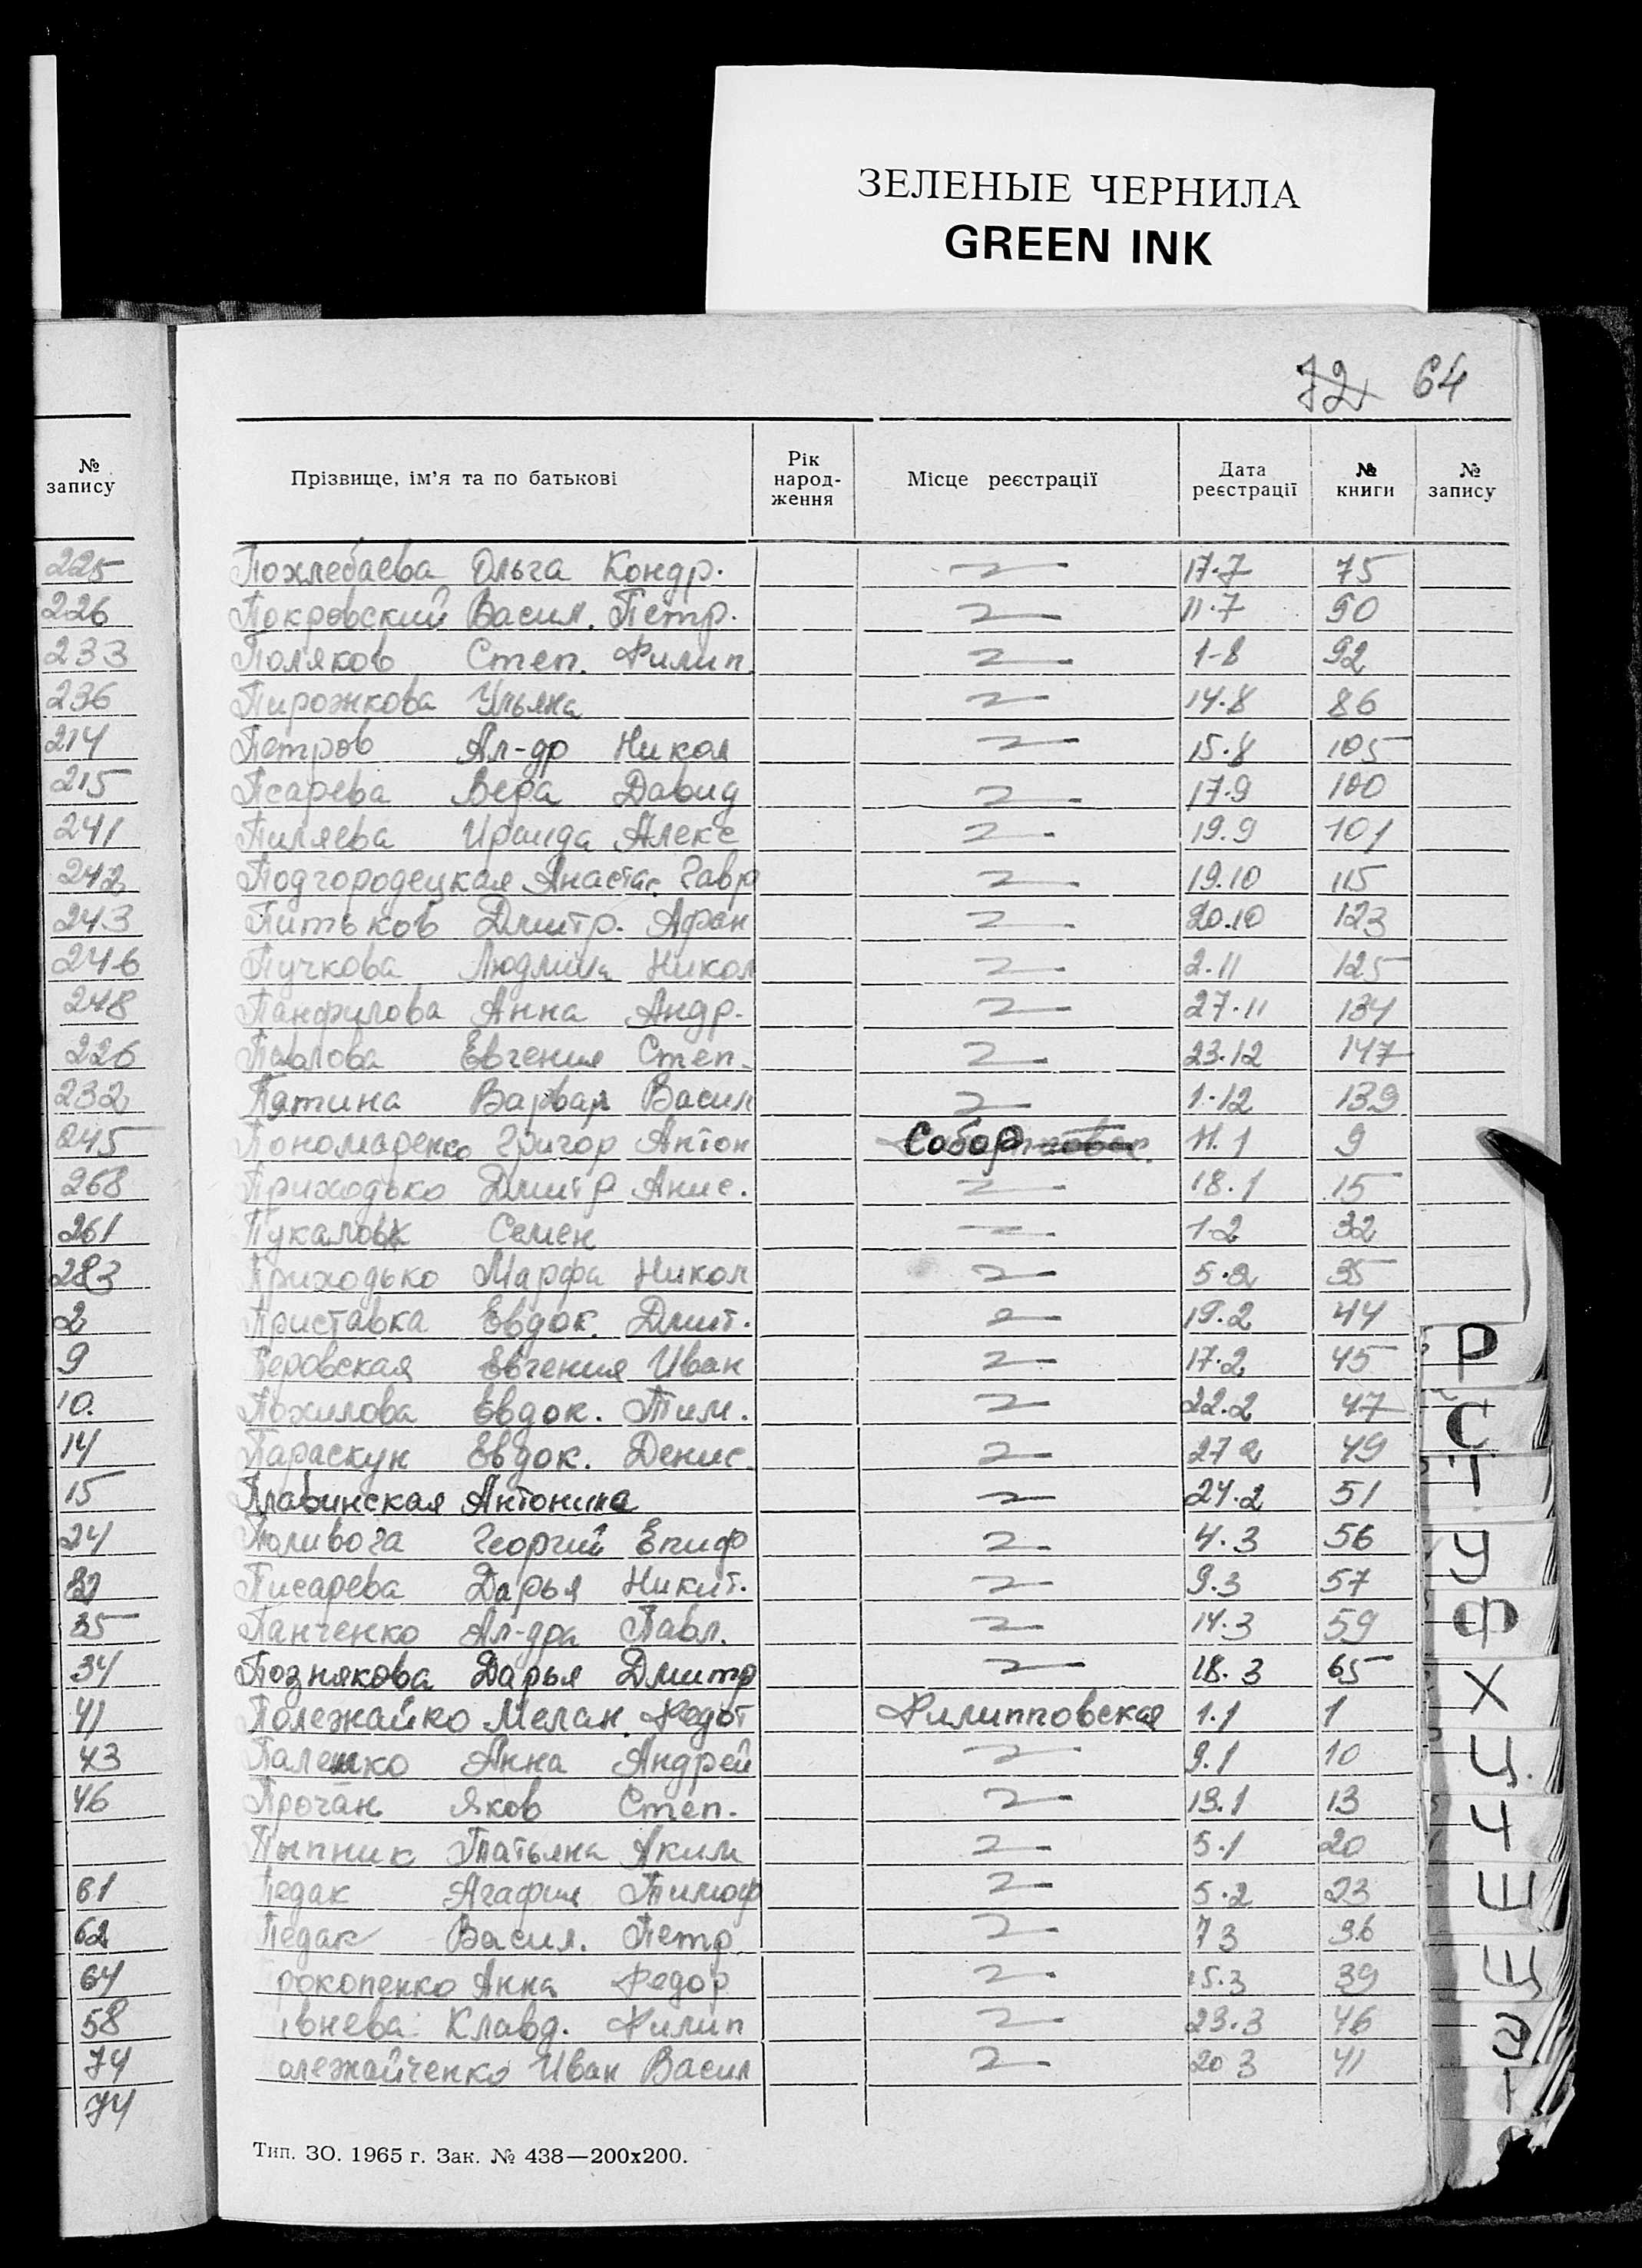 ЗЕЛЕНЫЕ ЧЕРНИЛА
GREEN INK
72 64
№ запису Прізвище, ім'я та по батькові Рік народ-ження Місце реєстрації Дата реєстрації № книги № запису
225 Похлебаева Ольга Кондр. 17.7 75
226 Покровский Васил. Петр. 11.7 90
233 Поляков Степ. Филип. 1-8 92
236 Пирожкова Ульяна 14.8 86
214 Петров Ал-др Никол 15.8 105
215 Псарева Вера Давид 17.9 100
241 Пиляева Ираида Алекс 19.9 101
242 Подгородецкая Анастас. Гавр 19.10 115
243 Питьков Дмитр. Афан 20.10 123
246 Пучкова Людмила Никол 2.11 125
248 Панфилова Анна Андр. 27.11 134
226 Павлова Евгения Степ. 23.12 147
232 Пятина Варвар Васил 1.12 139
245 Пономаренко Григор Антон Собор 11.1 9
268 Приходько Дмитр Анис. 18.1 15
261 Пукалов Семен 1 2 32
283 Приходько Марфа Никол 5.2 35
2 Приставка Евдок. Дмит. 19.2 44
9 Перовская Евгения Иван 17.2 45
10. Похилова Евдок. Тим. 22.2 47
14 Параскун Евдок. Денис. 27 2 49
15 Плавинская Антонина 24.2 51
24 Поливога Георгий Епиф 4.3 56
32 Писарева Дарья Никит. 9.3 57
35 Панченко Ал-дра Павл. 14.3 59
34 Познякова Дарья Дмитр 18.3 65
41 Полежайко Мелан. Федот Филипповская 1.1 1
43 Палешко Анна Андрей 9.1 10
46 Прочан Яков Степ. 13.1 13
Пыпник Татьяна Аким 5.1 20
61 Педак Агафия Тимоф 5.2 23
62 Педак Васил. Петр 7 3 36
64 рокопенко Анна Федор 15.3 39
58 івнева Клавд. Филип 23.3 46
74 олежайченко Иван Васил 20 3 41
74
Р
С
Т
У
Ф
Х
Ц.
Ч
Ш
Щ
Э
Тип. ЗО. 1965 г. Зак. № 438—200х200.